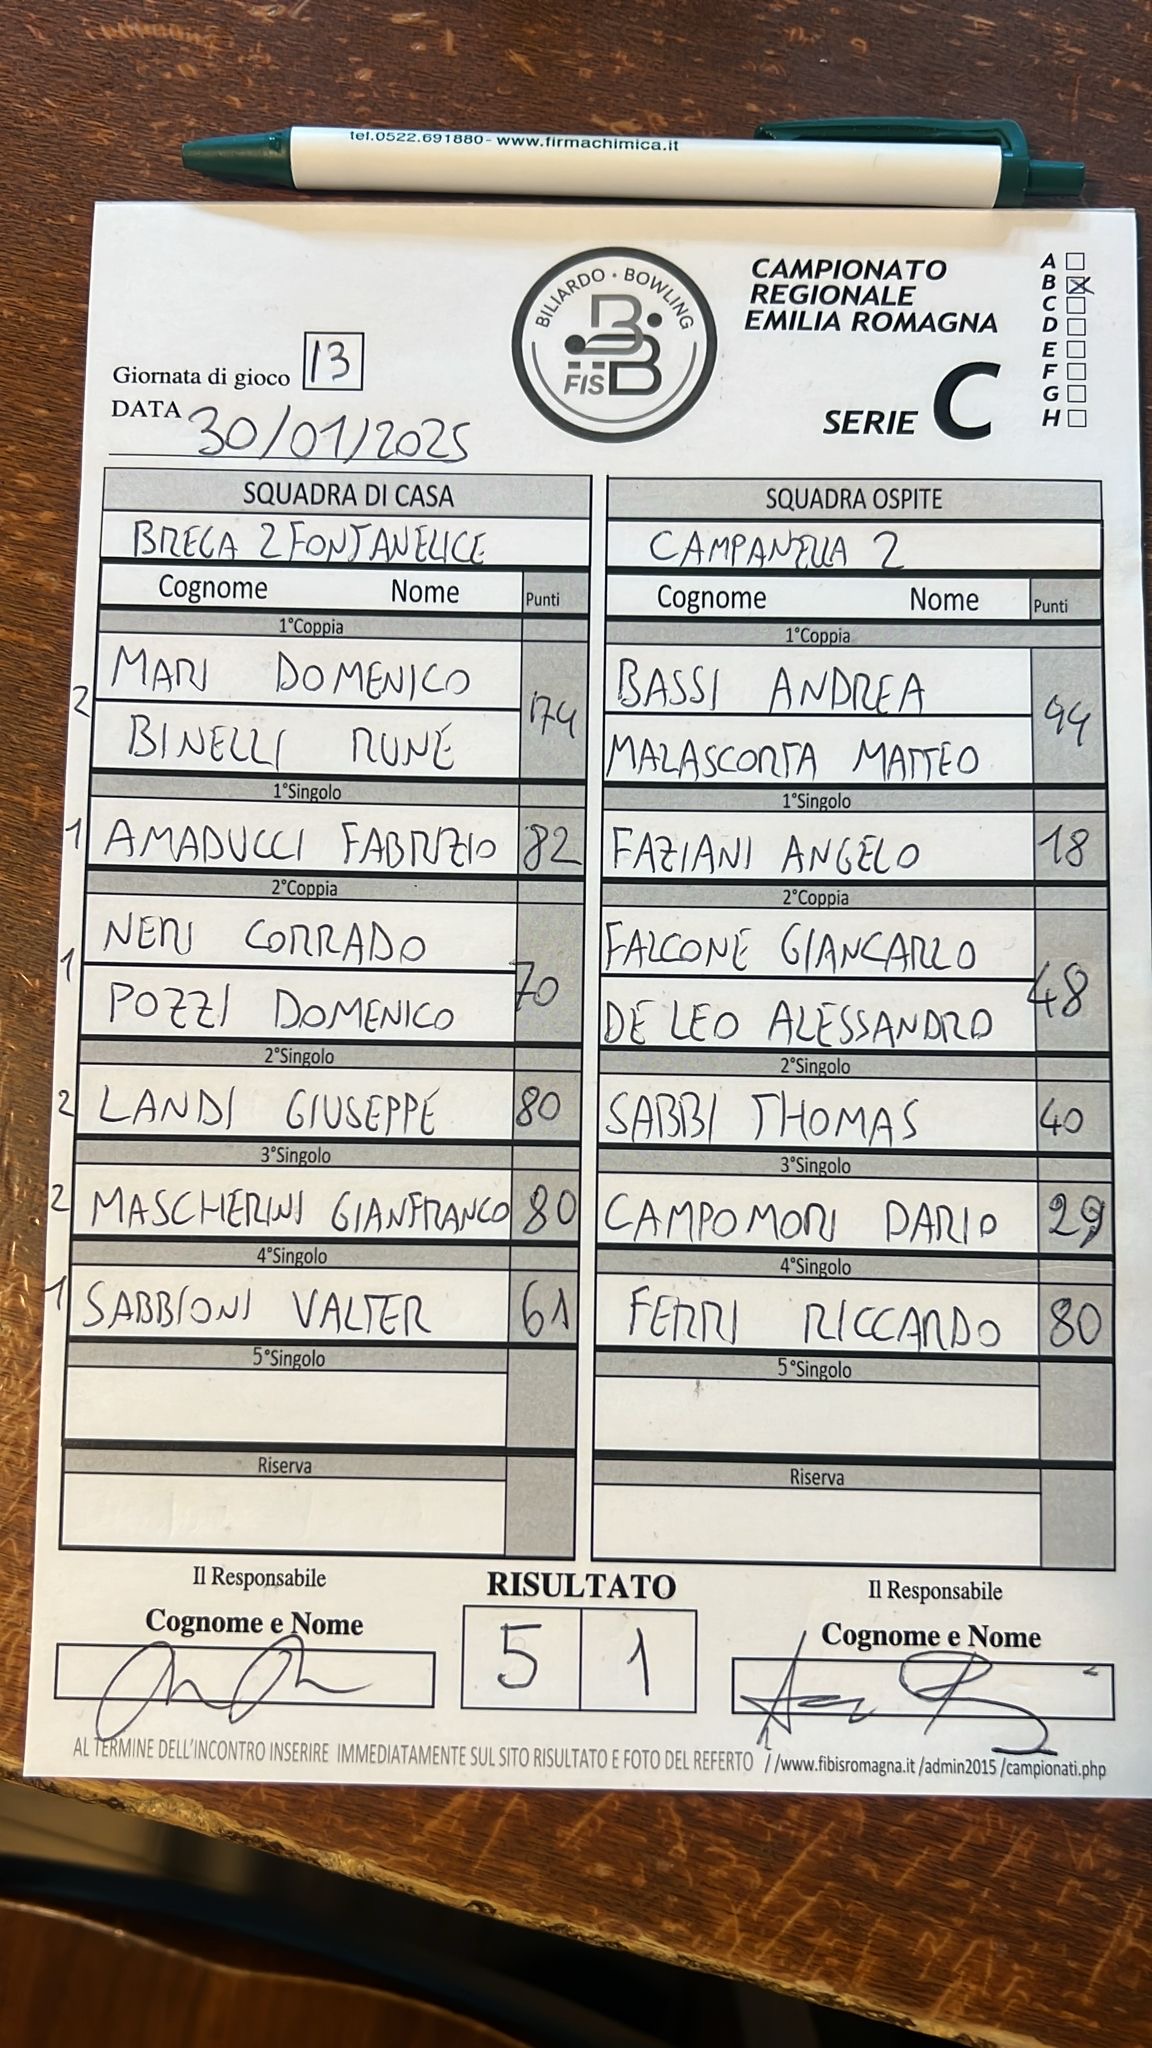 tel.0522.691880- www.firmachimica.it
BILIARDO • BOWLING
FISBB
CAMPIONATO
REGIONALE
EMILIA ROMAGNA
SERIE C
A
B
C
D
E
F
G
H
Giornata di gioco 13
DATA 30/01/2025
SQUADRA DI CASA
BREGA 2 FONTANELICE
Cognome Nome Punti
1°Coppia
MARI DOMENICO
2 74
BINELLI RUNE
1°Singolo
1 AMADUCCI FABRIZIO 82
2°Coppia
NERI CORRADO
1 70
POZZI DOMENICO
2°Singolo
2 LANDI GIUSEPPE 80
3°Singolo
2 MASCHERINI GIANFRANCO 80
4°Singolo
1 SABBIONI VALTER 61
5°Singolo
Riserva
SQUADRA OSPITE
CAMPANELLA 2
Cognome Nome Punti
1°Coppia
BASSI ANDREA
44
MALASCORTA MATTEO
1°Singolo
FAZIANI ANGELO 18
2°Coppia
FALCONE GIANCARLO
48
DE LEO ALESSANDRO
2°Singolo
SABBI THOMAS 40
3°Singolo
CAMPOMORI DARIO 29
4°Singolo
FERRI RICCARDO 80
5°Singolo
Riserva
Il Responsabile
Cognome e Nome
RISULTATO
5 1
Il Responsabile
Cognome e Nome
AL TERMINE DELL'INCONTRO INSERIRE IMMEDIATAMENTE SUL SITO RISULTATO E FOTO DEL REFERTO //www.fibisromagna.it /admin2015 /campionati.php